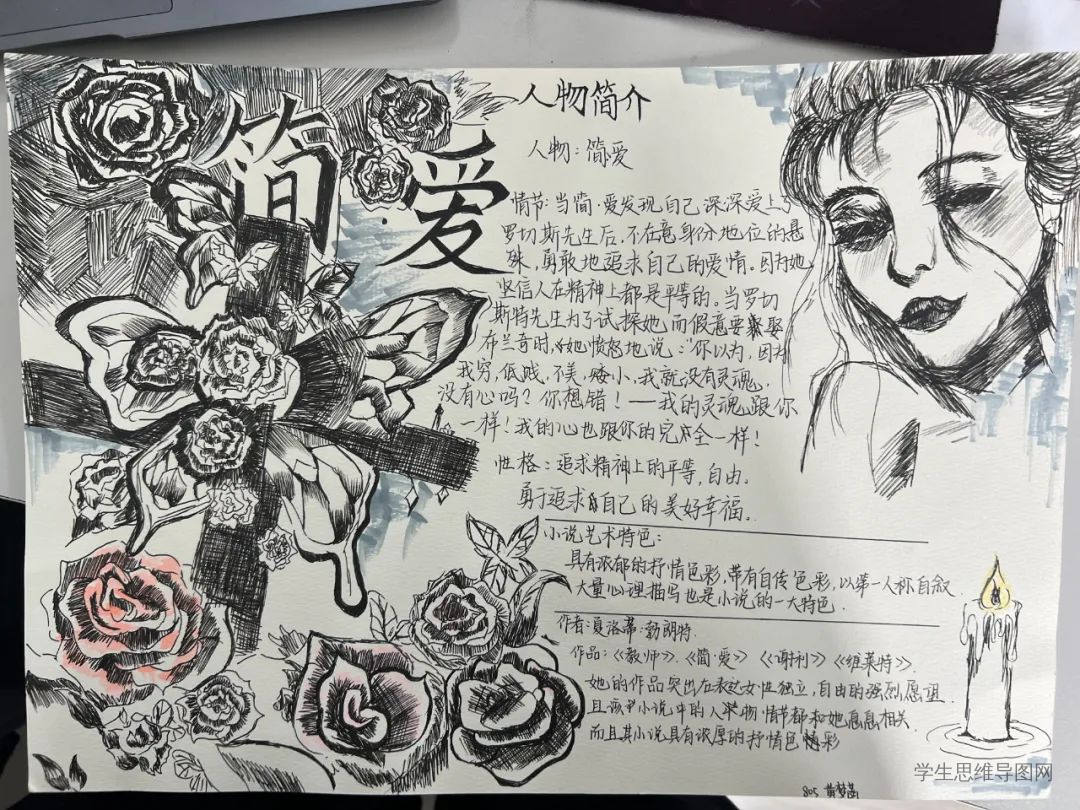 简爱
人物简介
人物：简·爱
情节：当简·爱发现自己深深爱上
罗切斯先生后，不在意身份地位的悬
殊，勇敢地追求自己的爱情。因为她
坚信人在精神上都是平等的。当罗切
斯特先生为了试探她而假意要娶
布兰奇时，她愤怒地说：“你以为，因为
我穷，低贱，不美，矮小，我就没有灵魂，
没有心吗？你想错！——我的灵魂跟你
一样！我的心也跟你的完全一样！
性格：追求精神上的平等，自由。
勇于追求自己的美好幸福。
小说艺术特色：
具有浓郁的抒情色彩，带有自传色彩，以第一人称自叙
大量心理描写也是小说的一大特色．
作者：夏洛蒂·勃朗特．
作品：《教师》．《简·爱》《谢利》《维莱特》．
她的作品突出在表达女性独立，自由的强烈愿
且小说中的人物情节都和她息息相关．
而且其小说具有浓厚的抒情色彩
805 黄梦
学生思维导图网